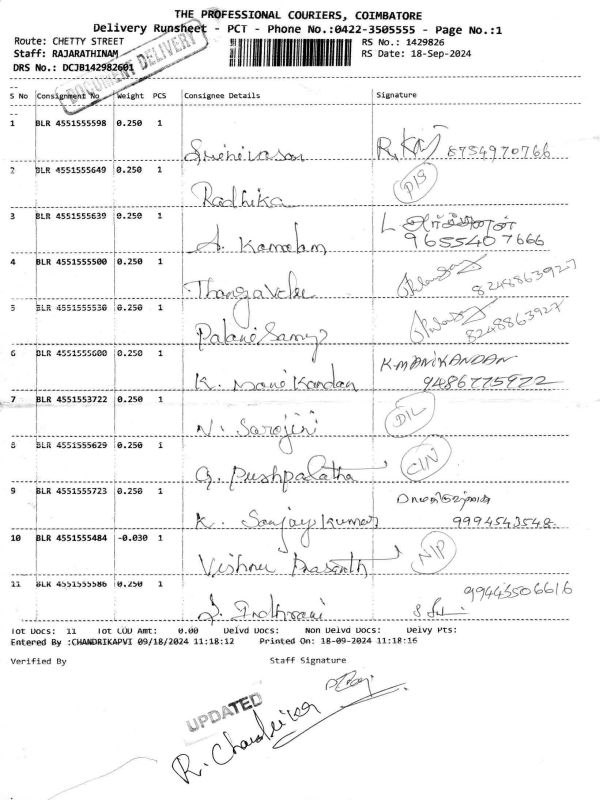 THE PROFESSIONAL COURIERS, COIMBATORE
Delivery Runsheet - PCT - Phone No.:0422-3505555 - Page No.:1
Route: CHETTY STREET RS No.: 1429826
Staff: RAJARATHINAM RS Date: 18-Sep-2024
DRS No.: DCJB142982601
DOCUMENT DELIVERY
S No Consignment No Weight PCS Consignee Details Signature
1 BLR 4551555598 0.250 1 Srinivasan R. 8754970766
2 BLR 4551555649 0.250 1 Radhika D/S
3 BLR 4551555639 0.250 1 A. Kamalam L 9655407666
4 BLR 4551555500 0.250 1 Thangavelu 8248863927
5 BLR 4551555530 0.250 1 Palanisamy 8248863927
6 BLR 4551555600 0.250 1 K. Manikandan K MANIKANDAN 9486775972
7 BLR 4551553722 0.250 1 N. Sarojini D/L
8 BLR 4551555629 0.250 1 G. Pushpalatha C/N
9 BLR 4551555723 0.250 1 K. Sanjay Kumar 9994543548
10 BLR 4551555484 -0.030 1 Vishnu Prasanth N/P
11 BLR 4551555586 0.250 1 S. Indhrani 99443506616
Tot Docs: 11 Tot COD Amt: 0.00 Delvd Docs: Non Delvd Docs: Delvy Pts:
Entered By :CHANDRIKAPVI 09/18/2024 11:18:12 Printed On: 18-09-2024 11:18:16
Verified By Staff Signature
UPDATED
R. Chandrika